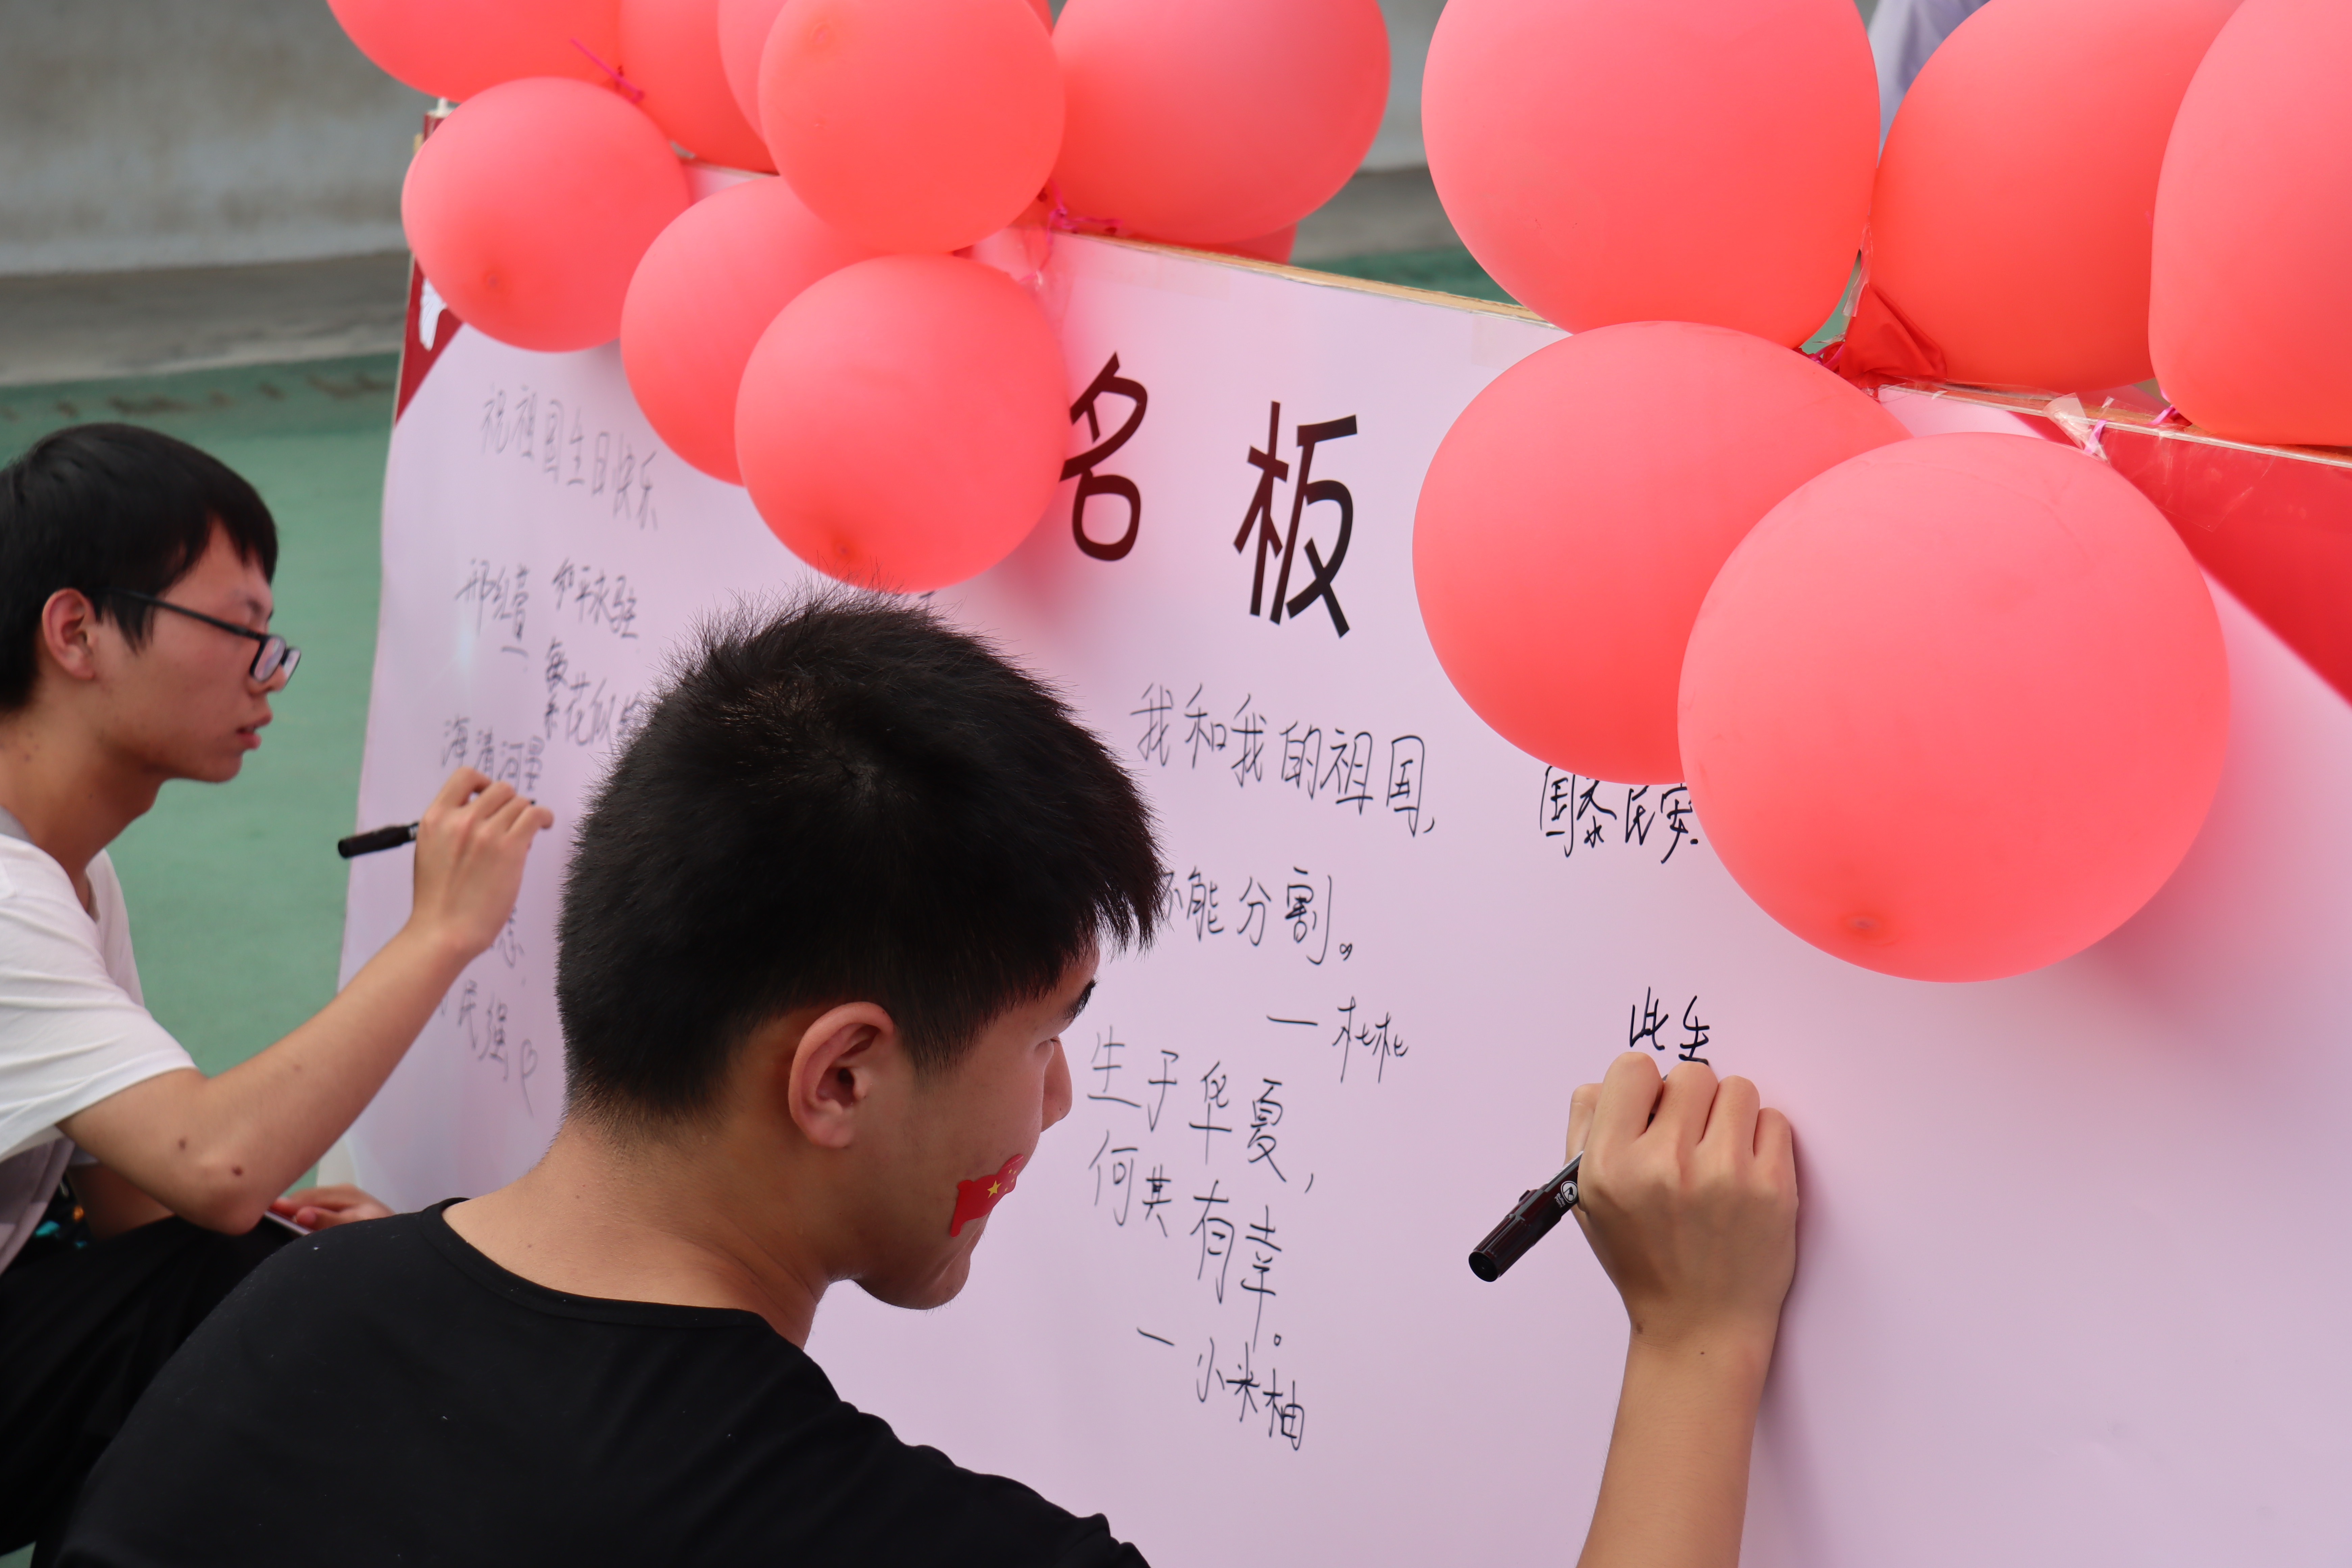 名板
祝祖国生日快乐
和平永驻
繁花似
海清河晏
民强
我和我的祖国,
不能分割。
一杜杜
国泰民安.
此生
生于华夏,
何其有幸。
一小米柚